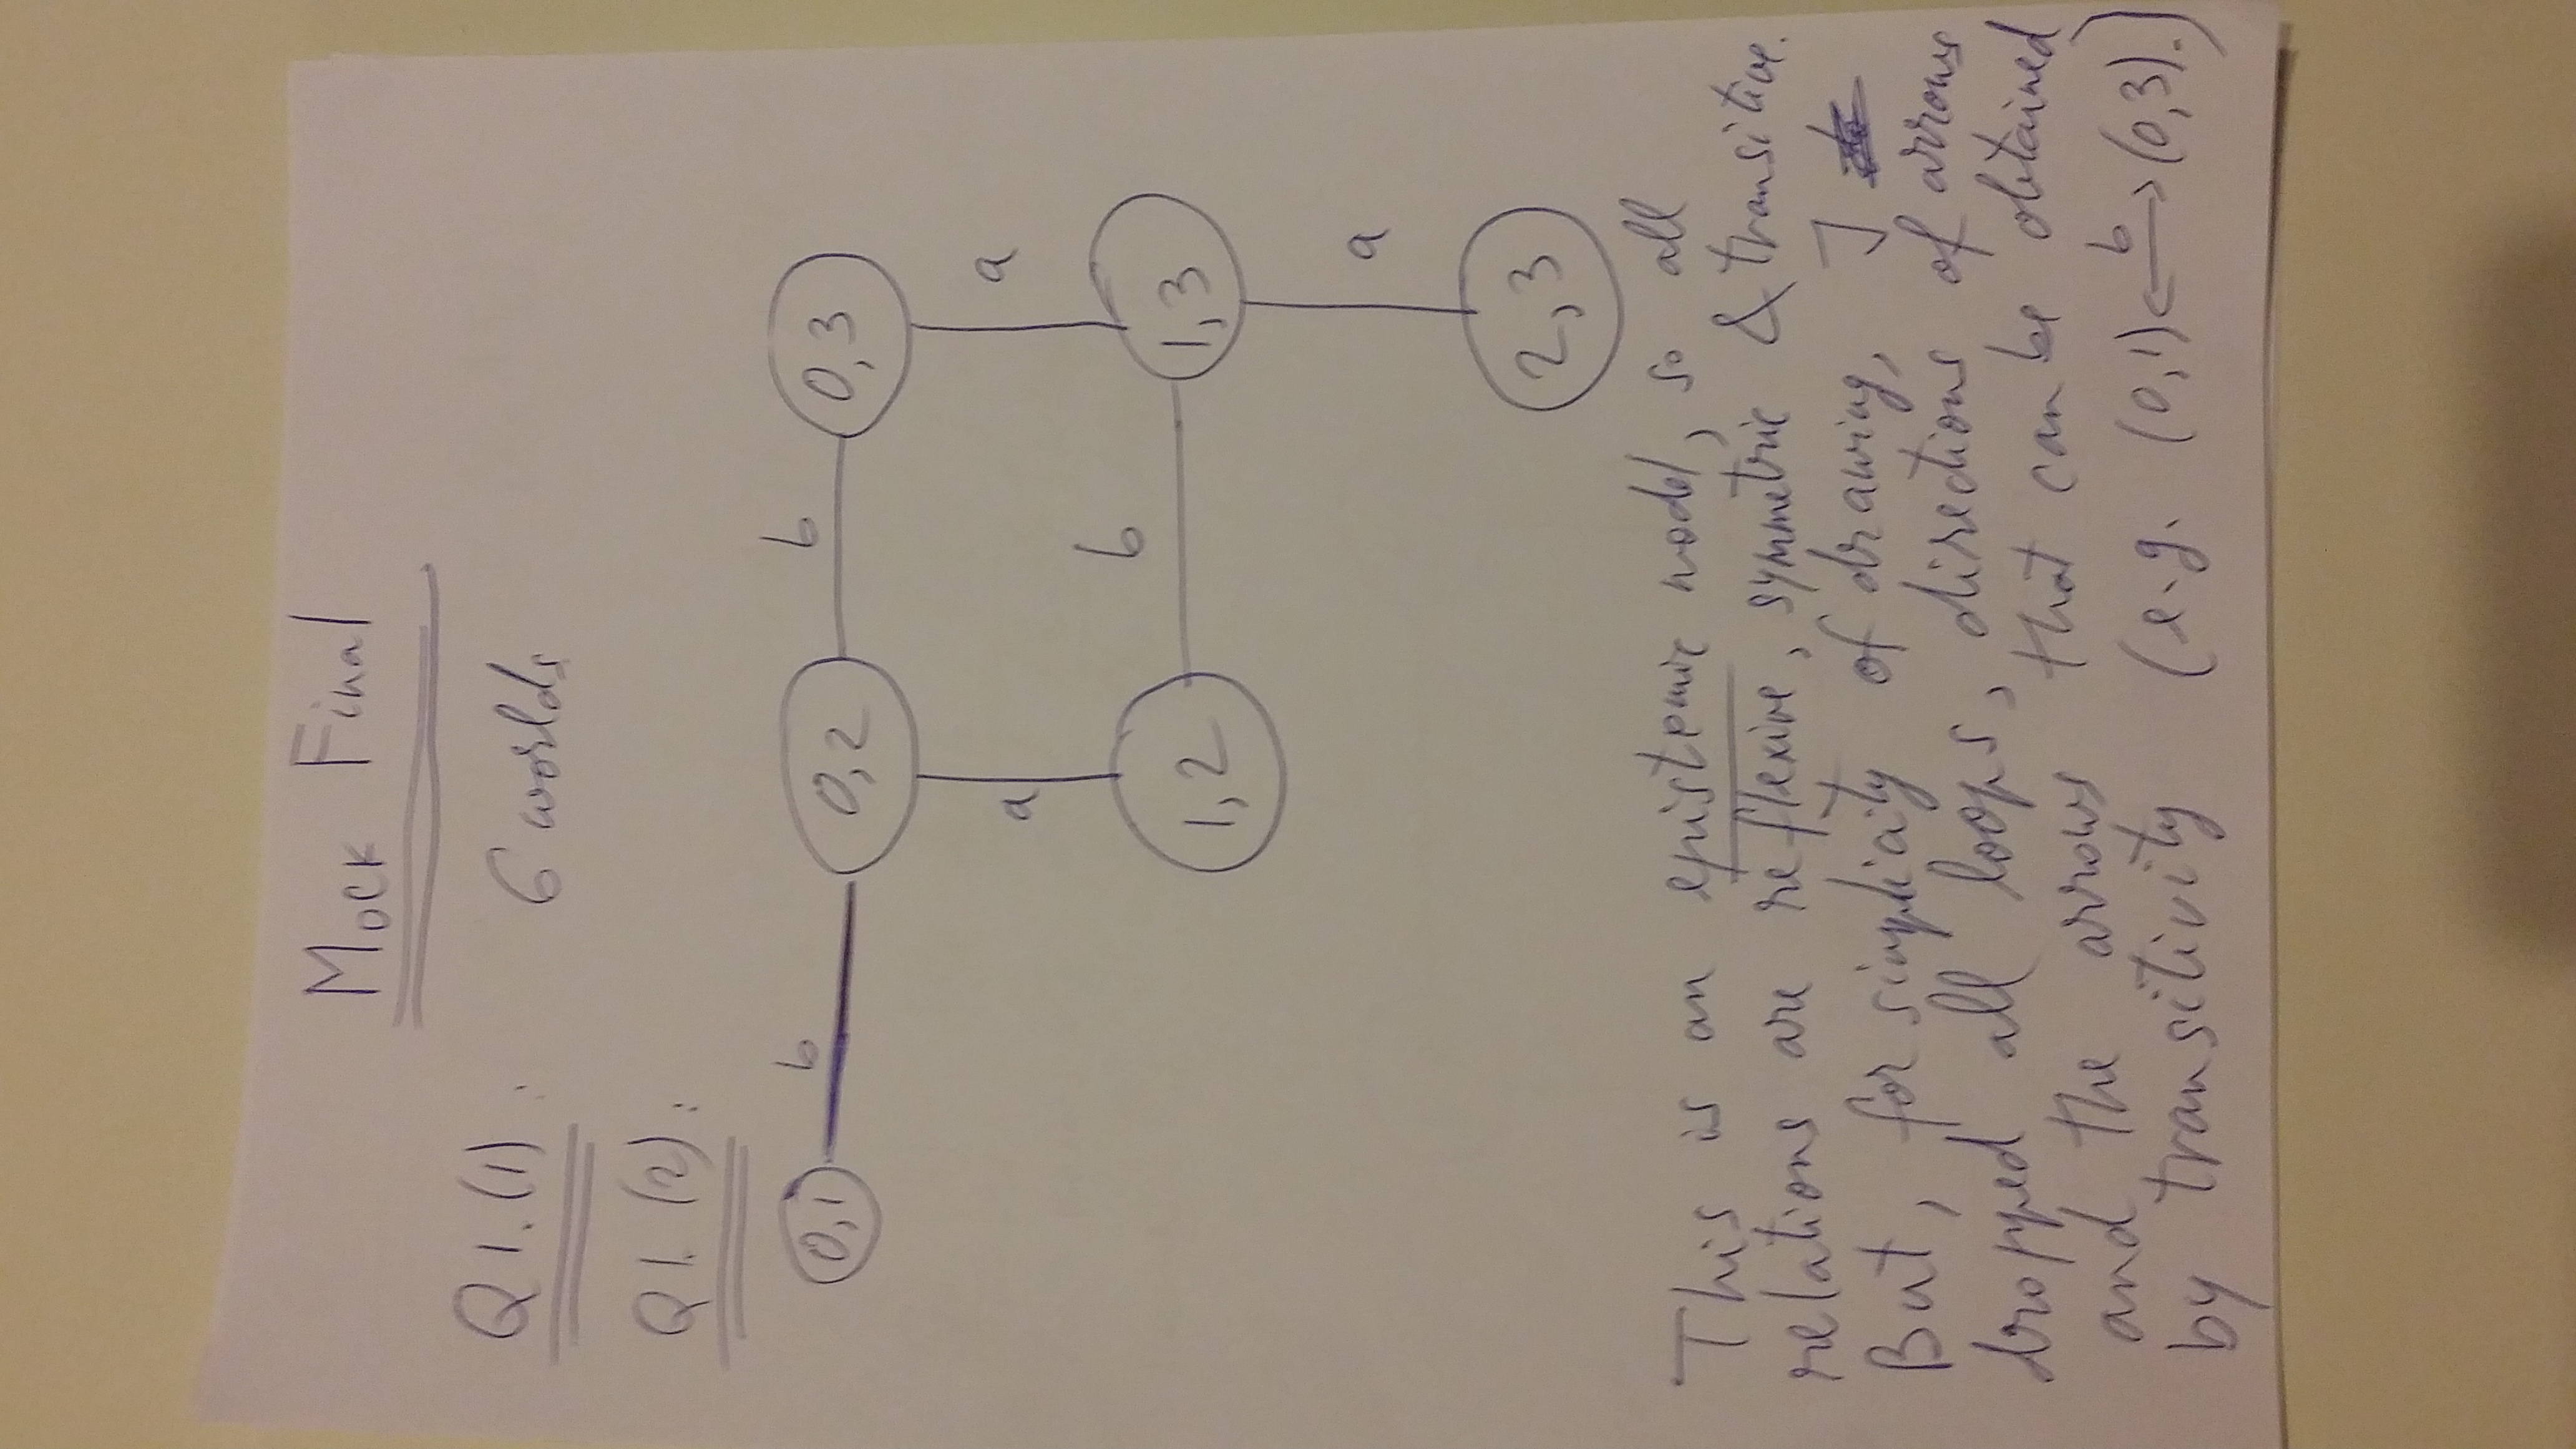 Mock Final
Q1.(1): 6 worlds
Q1.(2):
b b
0,1 0,2 0,3
a a
b
1,2 1,3
a
2,3
This is an epistemic model, so all
relations are reflexive, symmetric & transitive.
But, for simplicity of drawing, I
dropped all loops, directions of arrows
and the arrows that can be obtained
by transitivity (e.g. (0,1) <-b-> (0,3).)